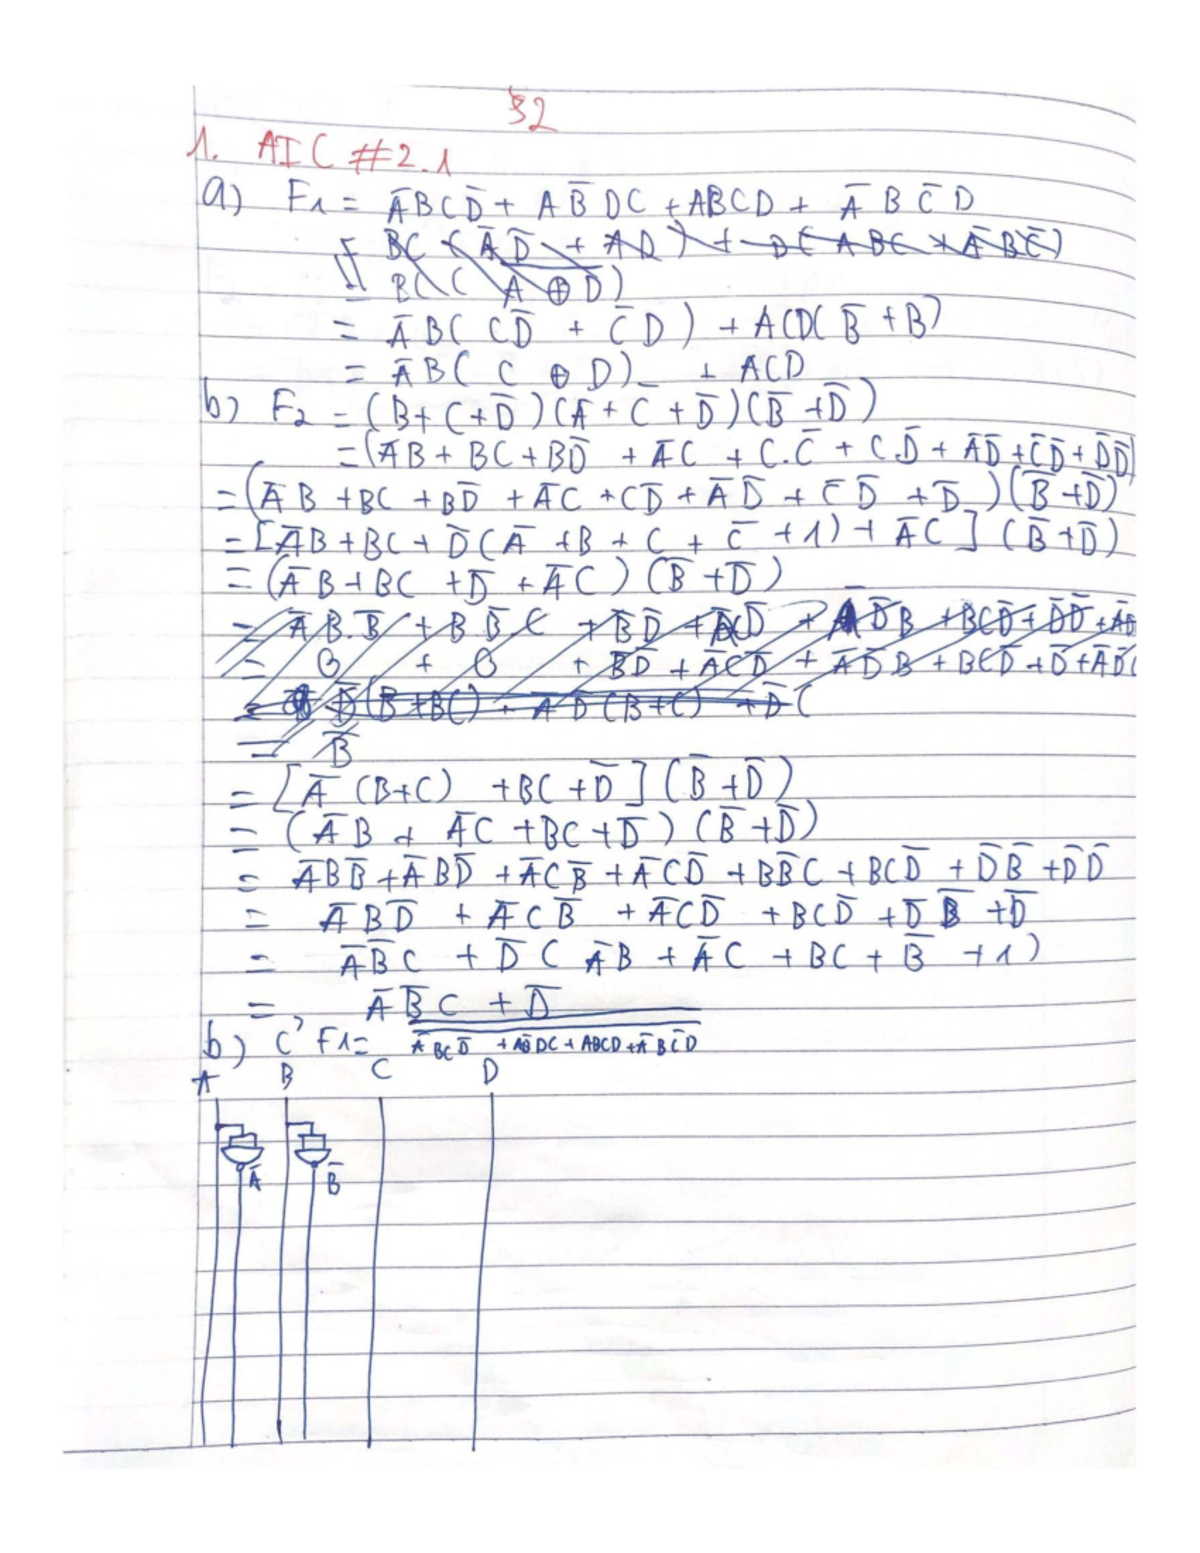 §2
1. AIC #2.1
a) F₁ = A̅BCD̅ + AB̅DC + ABCD + A̅BC̅D
BC (A̅D̅ + AD) + D(ABC + A̅BC̅)
= BC( A ⊕ D)
= A̅B(CD̅ + C̅D) + ACD(B̅ + B)
= A̅B( C ⊕ D) + ACD
b) F₂ = (B+C+D̅)(A̅+C̅+D̅)(B̅+D̅)
= (A̅B + BC̅ + BD̅ + A̅C + C.C̅ + C.D̅ + A̅D̅ + C̅D̅ + D̅D̅)
= (A̅B + BC + BD̅ + A̅C + CD̅ + A̅D̅ + C̅D̅ + D̅)(B̅+D̅)
= [A̅B + BC + D̅(A̅ + B + C + C̅ + 1) + A̅C](B̅+D̅)
= (A̅B + BC + D̅ + A̅C)(B̅+D̅)
= A̅B.B̅ + BB̅C + B̅D̅ + A̅CD̅ + A̅D̅B + BCD̅ + D̅D̅ + A̅D̅
= 0 + 0 + B̅D̅ + A̅CD̅ + A̅D̅B + BCD̅ + D̅ + A̅D̅C
= D̅(B̅+BC) + A̅D̅(B+C) + D̅(
= B̅
= [A̅(B+C) + BC + D̅](B̅+D̅)
= (A̅B + A̅C + BC + D̅)(B̅+D̅)
= A̅BB̅ + A̅BD̅ + A̅CB̅ + A̅CD̅ + BB̅C + BCD̅ + D̅B̅ + D̅D̅
= A̅BD̅ + A̅CB̅ + A̅CD̅ + BCD̅ + D̅B̅ + D̅
= A̅B̅C + D̅(A̅B + A̅C + BC + B̅ + 1)
= A̅B̅C + D̅
b) C, F1 = A̅BCD̅ + AB̅DC + ABCD + A̅BC̅D
A B C D
A̅ B̅